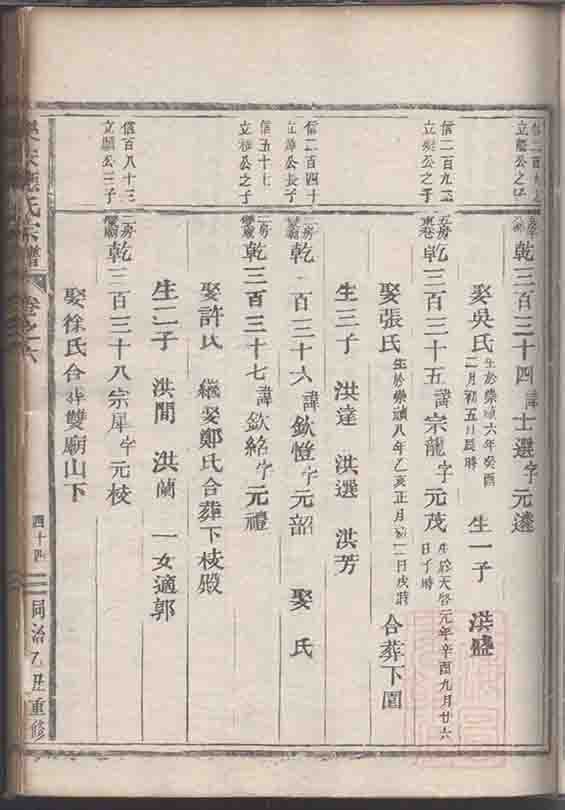 立 公之子
乾三百三十四諱士選字元遴
娶吳氏生於崇禎六年癸酉二月初五日辰時 生一子 洪盛
信二百九
立 公之子
五房 乾三百三十五諱宗龍字元茂生於天啓元年辛酉九月廿六日丁時
娶張氏生於崇禎八年乙亥正月初二日戌時 合葬下園
生三子 洪達 洪選 洪芳
信二百四十
立 公長子
二房 乾三百三十六諱欽憕字元韶 娶 氏
信 五十七
立 公之子
二房 乾三百三十七諱欽絡字元禮
娶許氏 繼娶鄭氏合葬下枝殿
生二子 洪間 洪蘭 一女適郭
信百八十三
立願公三子
三房 乾三百三十八宗犀字元枝
娶徐氏合葬雙廟山下
氏宗譜 卷之六 四十四 同治乙丑重修